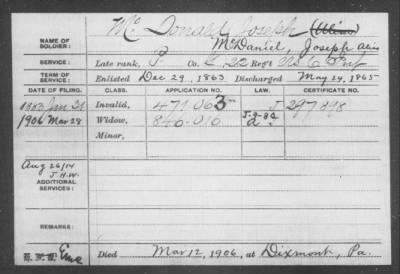 NAME OF SOLDIER: Mc Donald Joseph (Alias)
McDaniel, Joseph Alias
SERVICE: Late rank, P. Co. C, 22 Reg't U.S. C. Inf
TERM OF SERVICE: Enlisted Dec 29, 1863 Discharged May 24, 1865
DATE OF FILING. CLASS. APPLICATION NO. LAW. CERTIFICATE NO.
1883 Jan 31 Invalid, 471.063 J 297898
1906 Mar 28 Widow, 846.010 J-9-80
Minor,
Aug 26/14
J.H.W.
ADDITIONAL SERVICES:
REMARKS:
Died Mar 12, 1906, at Dixmont, Pa.